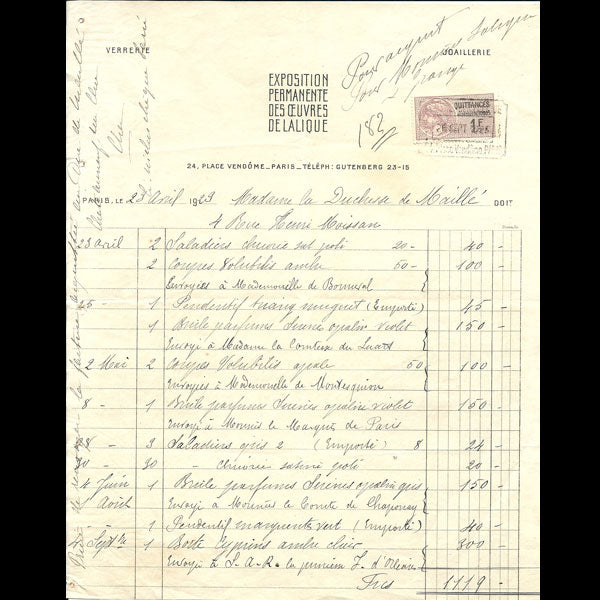 VERRERIE
JOAILLERIE
Pour acquit
Pour Monsieur Lalique
EXPOSITION
PERMANENTE
DES ŒUVRES
DE LALIQUE
182
QUITTANCES
1F
SEPT
24, PLACE VENDÔME_PARIS_TÉLÉPH: GUTENBERG 23-15
PARIS, LE 23 Avril 1923 Madame la Duchesse de Maillé DOIT
4 Rue Henri Moissan
23 avril 2 Saladiers chicorée sat poli 20- 40 -
2 Coupes Volubilis ambre 50- 100 -
Envoyées à Mademoiselle de Bonneval
25 - 1 Pendentif muguet (Emporté) 45 -
1 Brûle parfums Sirènes opalin violet 150 -
Envoyé à Madame la Comtesse du Luart
2 Mai 2 Coupes Volubilis opale 50 100 -
Envoyées à Mademoiselle de Montesquiou
8 - 1 Brûle parfums Sirènes opaline violet 150 -
Envoyé à Monsieur le Marquis de Paris
28 - 3 Saladiers gris 2 (Emporté) 8 24 -
30 - - chicorée satiné poli " 20 -
4 Juin 1 Brûle parfums Sirènes opalin gris 150 -
Août Envoyé à Monsieur le Comte de Chaponay
1 Pendentif marguerite vert (Emporté) 40 -
Sept 1 Boite Cyprins ambre clair 300 -
Envoyé à S.A.R. la princesse d'Orléans
Frcs 1119 -